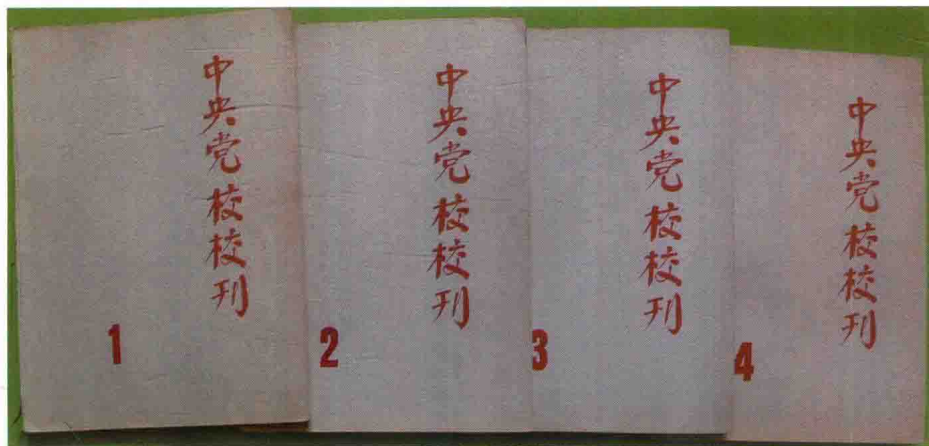 中央党校校刊
1
中央党校校刊
2
中央党校校刊
3
中央党校校刊
4